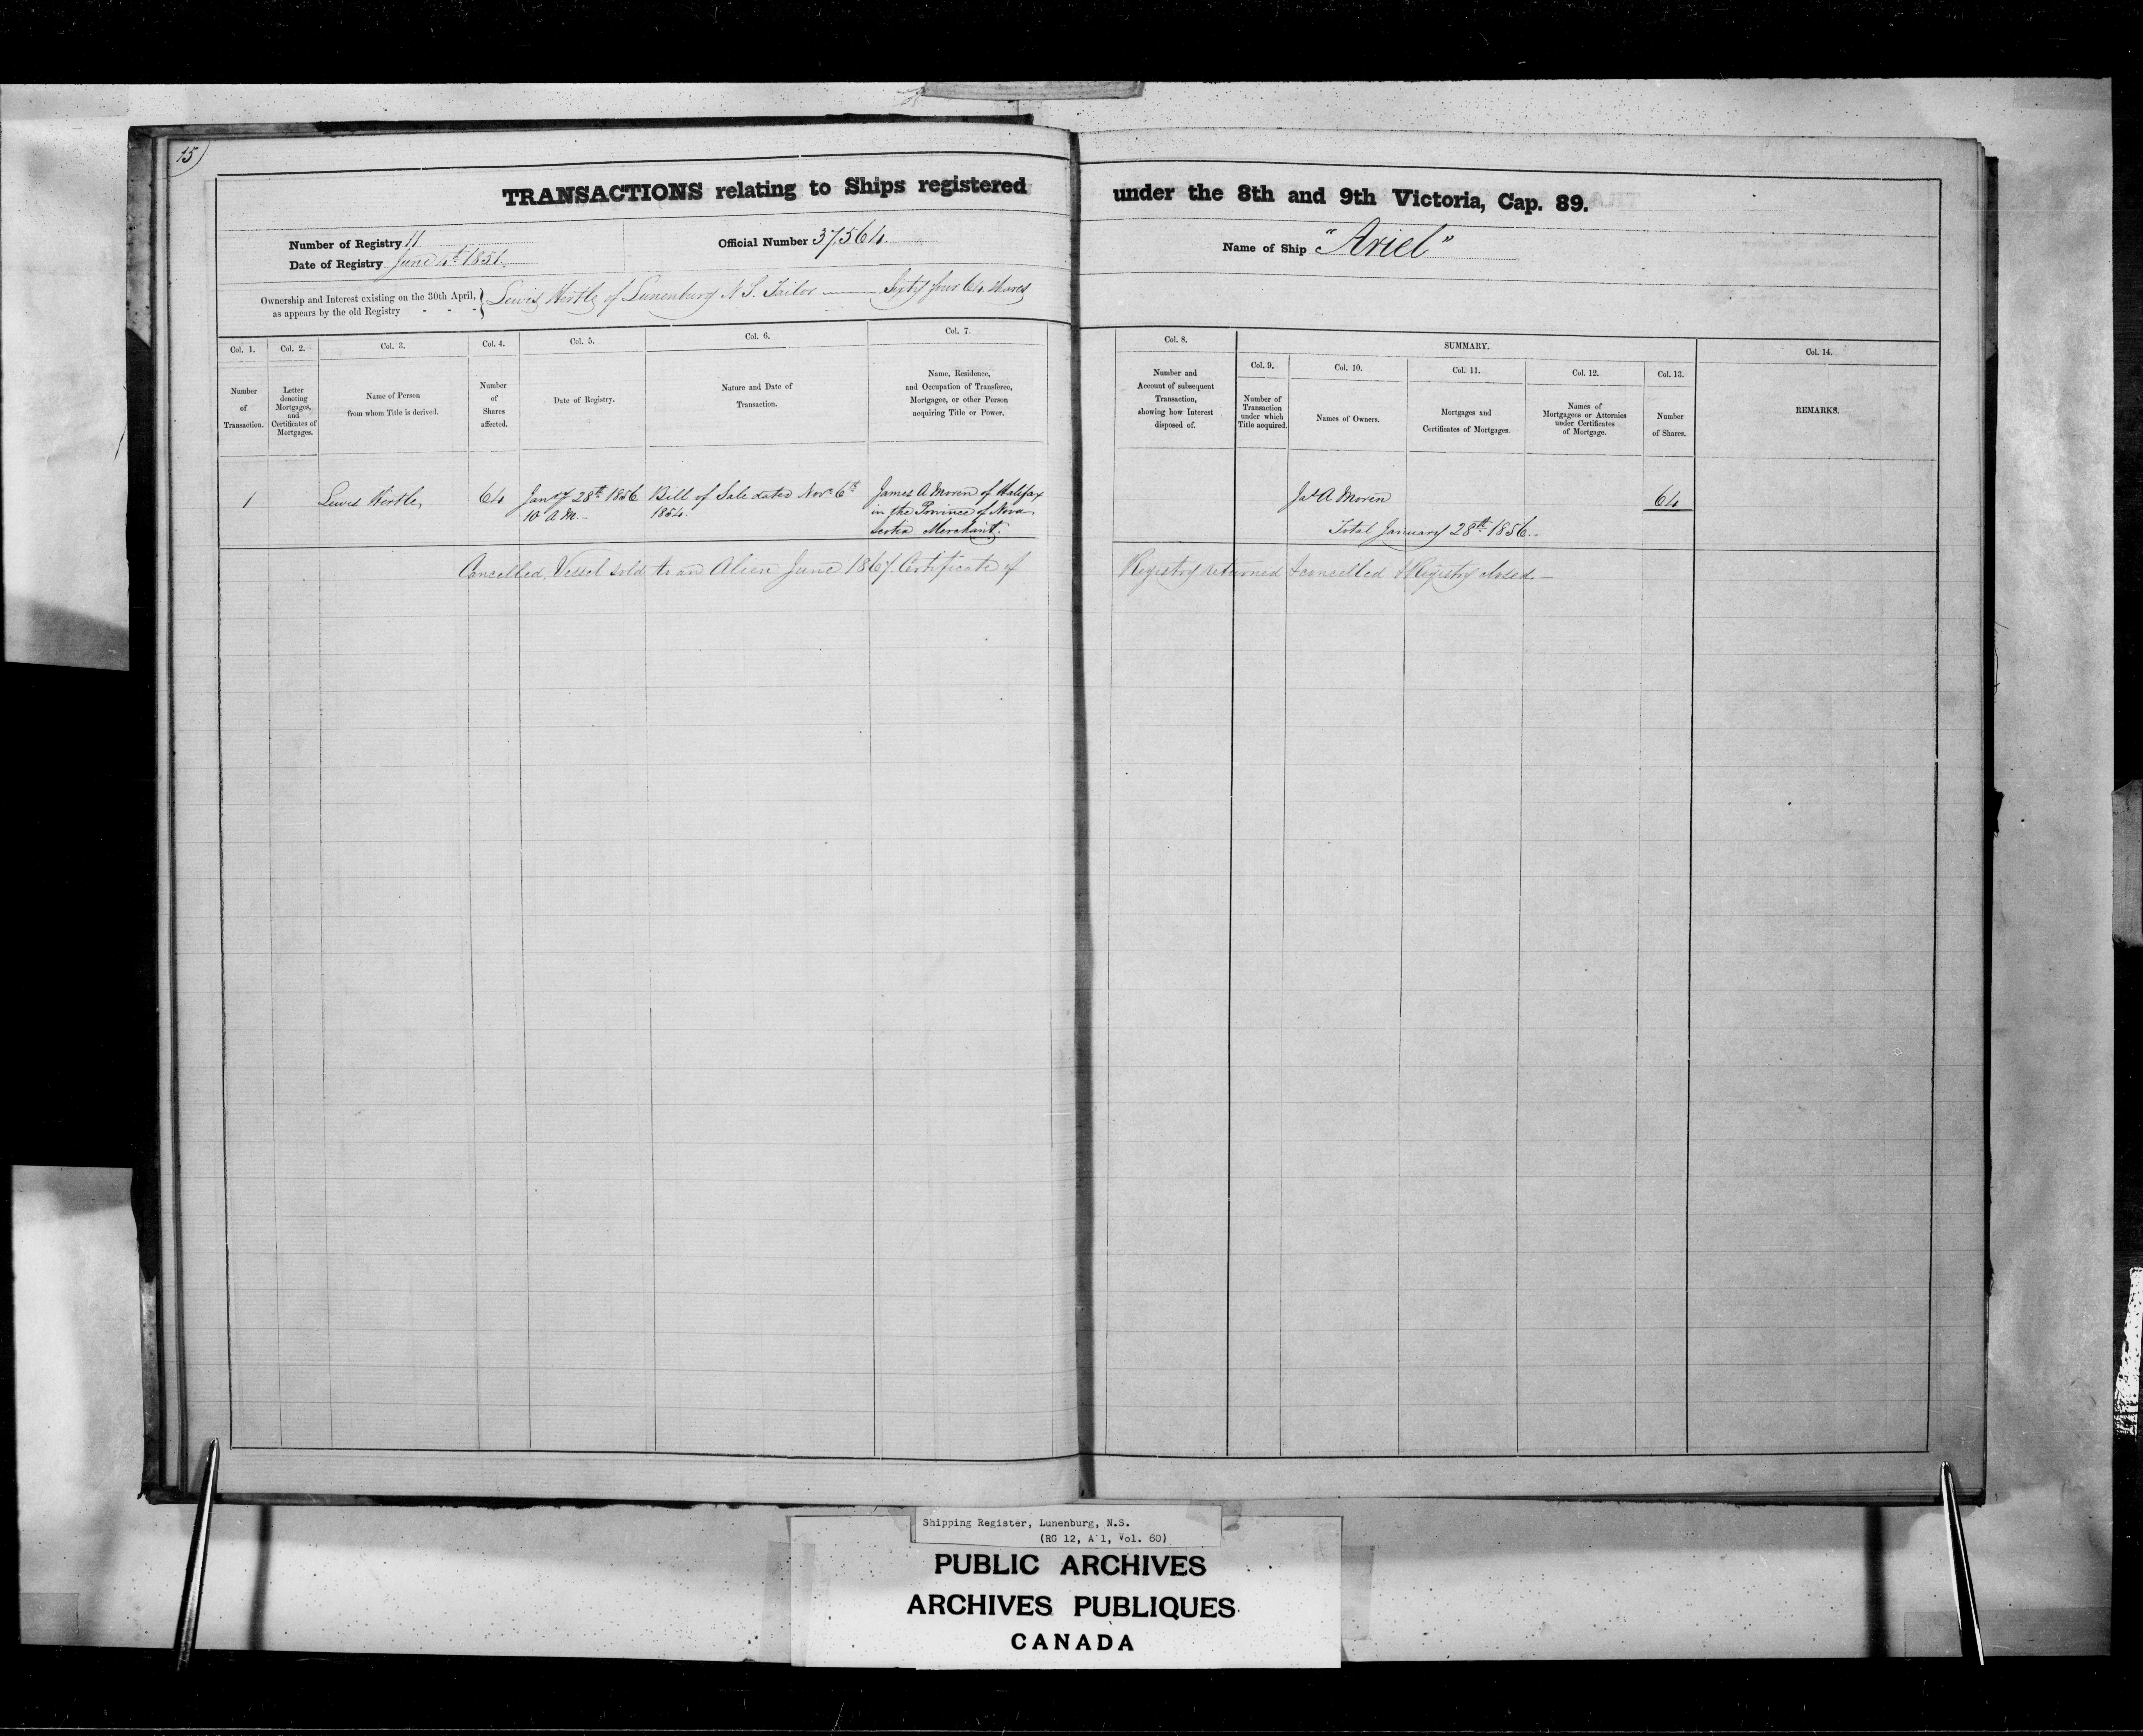 15)
TRANSACTIONS relating to Ships registered under the 8th and 9th Victoria, Cap. 89.
Number of Registry 11
Official Number 37,564
Name of Ship "Ariel"
Date of Registry June 4th 1851
Ownership and Interest existing on the 30th April, as appears by the old Registry - - - } Lewis Hirtle of Lunenburg N S. Tailor — Sixty four 64 shares
Col. 1.
Number
of
Transaction.
Col. 2.
Letter
denoting
Mortgages,
and
Certificates of
Mortgages.
Col. 3.
Name of Person
from whom Title is derived.
Col. 4.
Number
of
Shares
affected.
Col. 5.
Date of Registry.
Col. 6.
Nature and Date of
Transaction.
Col. 7.
Name, Residence,
and Occupation of Transferee,
Mortgagee, or other Person
acquiring Title or Power.
Col. 8.
Number and
Account of subsequent
Transaction,
showing how Interest
disposed of.
SUMMARY.
Col. 9.
Number of
Transaction
under which
Title acquired.
Col. 10.
Names of Owners.
Col. 11.
Mortgages and
Certificates of Mortgages.
Col. 12.
Names of
Mortgagees or Attornies
under Certificates
of Mortgage.
Col. 13.
Number
of Shares.
Col. 14.
REMARKS.
1
Lewis Hirtle,
64
Jany 28th 1856
10 A M. -
Bill of Sale dated Novr 6th
1854.
James A Moren of Halifax
in the Province of Nova
Scotia Merchant.
Jas A Moren
64
Total January 28th 1856. -
Cancelled, Vessel sold to an Alien June 1867. Certificate of Registry returned & cancelled & Registry closed. —
Shipping Register, Lunenburg, N.S.
(RG 12, A 1, Vol. 60)
PUBLIC ARCHIVES
ARCHIVES PUBLIQUES
CANADA